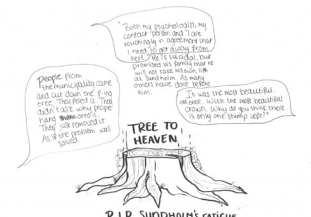 "Both my psychologist, my
contact person and I are
touchingly in agreement that
I need to get away from
here. He is suicidal, but
promised his family that he
will not take his own life
at Sundholm. As many
others have done before
him.
People from
the municipality came
and cut down the f-ing
tree. They pissed . That
didn't ask why people
hang onto it.
They just removed it
As if the problem was
solved.
It was the most beautiful
old tree. With the most beautiful
crown. Why do you think there
is only one stump left?"
TREE TO
HEAVEN
R.I.P. SUNDHOLM'S